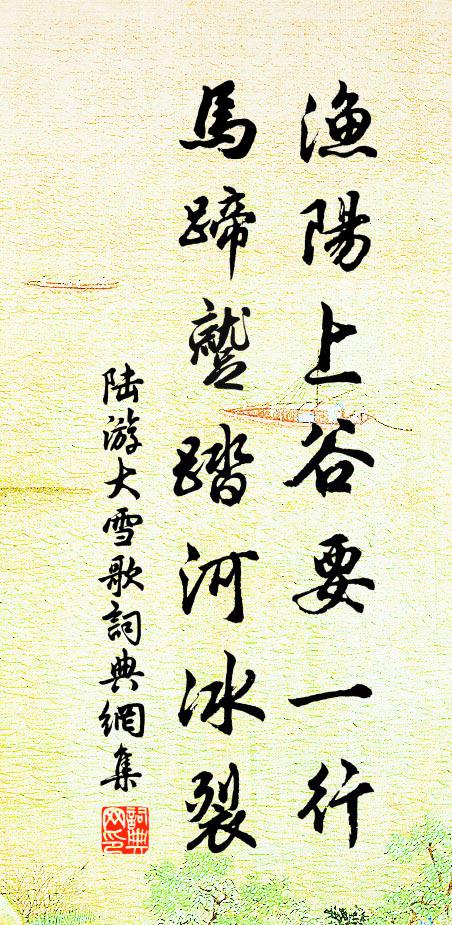 漁陽上谷要一行
馬蹄蹴踏河冰裂
陆游大雪歌詞典網集
詞典網印